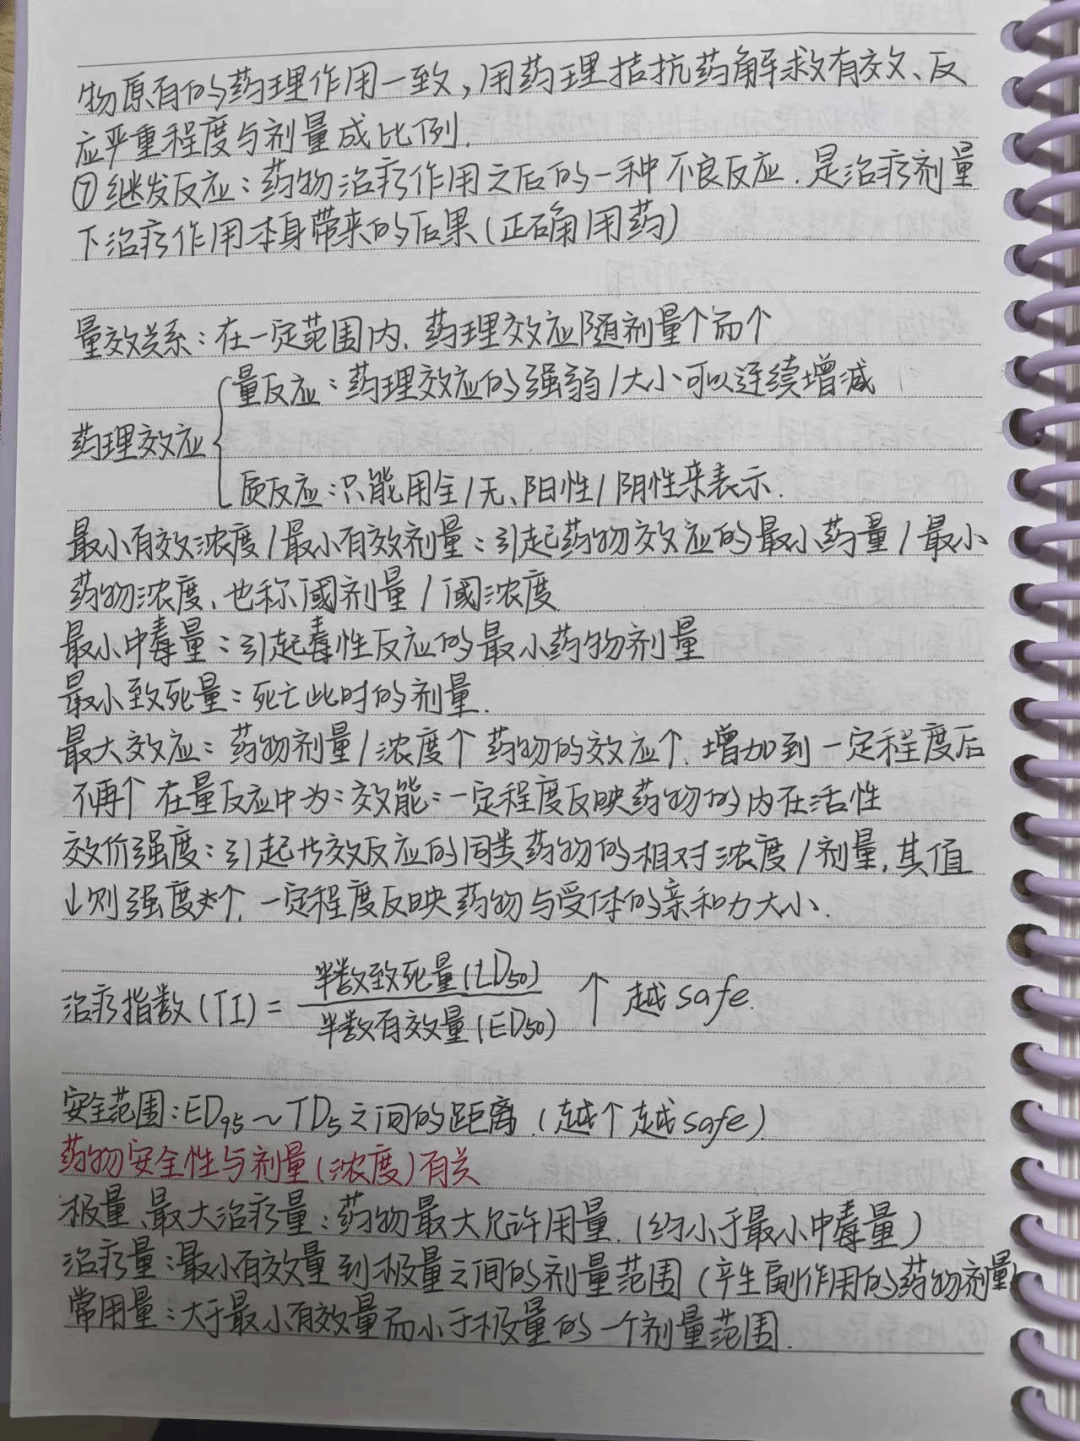 物原有的药理作用一致,用药理拮抗药解救有效、反
应严重程度与剂量成比例.
⑦继发反应:药物治疗作用之后的一种不良反应.是治疗剂量
下治疗作用本身带来的后果(正确用药)
量效关系:在一定范围内.药理效应随剂量个而个
量反应:药理效应的强弱/大小可以连续增减
药理效应
质反应:只能用全/无、阳性/阴性来表示.
最小有效浓度/最小有效剂量:引起药物效应的最小药量/最小
药物浓度、也称阈剂量/阈浓度
最小中毒量:引起毒性反应的最小药物剂量
最小致死量:死亡此时的剂量.
最大效应:药物剂量/浓度个药物的效应个.增加到一定程度后
不再个在量反应中为:效能:一定程度反映药物的内在活性
效价强度:引起共效反应的同类药物的相对浓度/剂量,其值
↓则强度个.一定程度反映药物与受体的亲和力大小.
治疗指数(TI)=半数致死量(LD50)
半数有效量(ED50) ↑越safe.
安全范围:ED95~TD5之间的距离.(越个越safe)
药物安全性与剂量(浓度)有关
极量、最大治疗量:药物最大允许用量.(约小于最小中毒量)
治疗量:最小有效量到极量之间的剂量范围(产生副作用的药物剂量)
常用量:大于最小有效量而小于极量的一个剂量范围.